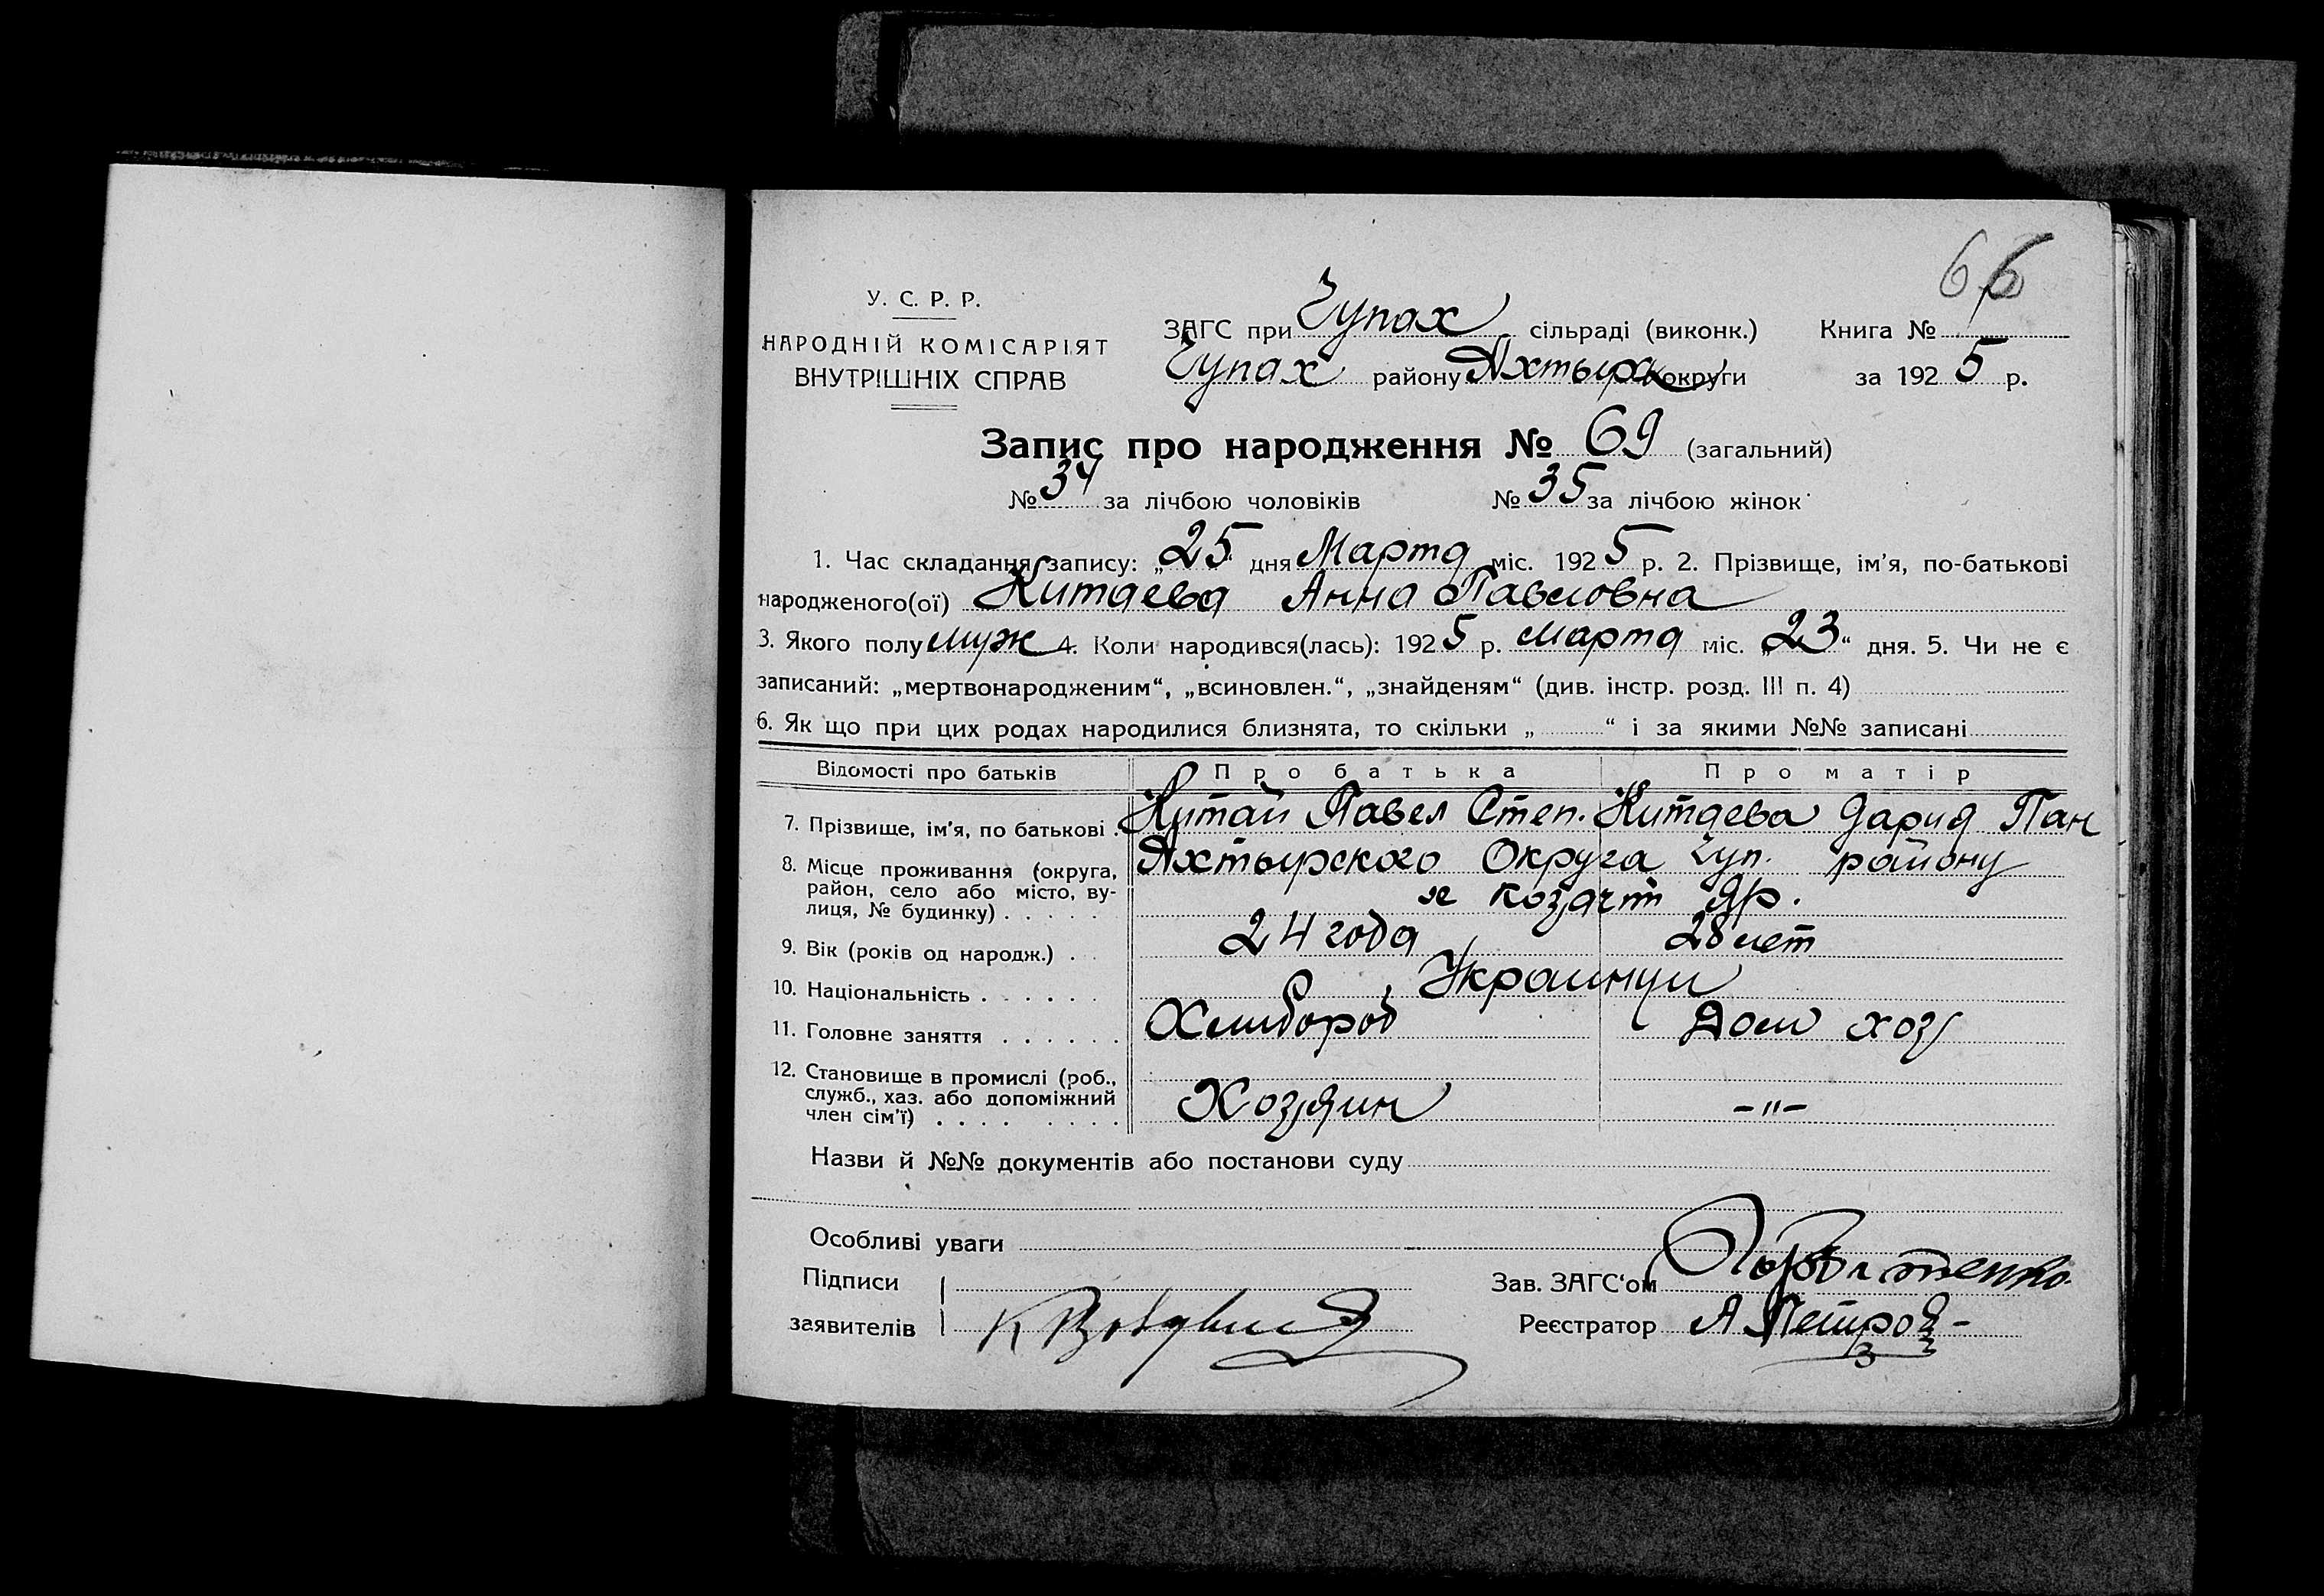 66
У. С. Р. Р.
НАРОДНІЙ КОМІСАРІЯТ
ВНУТРІШНІХ СПРАВ
ЗАГС при Чупах сільраді (виконк.) Книга №
Чупах району Ахтырк округи за 1925 р.
Запис про народження № 69 (загальний)
№ 34 за лічбою чоловіків № 35 за лічбою жінок
1. Час складання запису: „25“ дня Марта міс. 1925 р. 2. Прізвище, ім'я, по-батькові
народженого(ої) Китаева Анна Павловна
3. Якого полу муж 4. Коли народився(лась): 1925 р. Марта міс. „23“ дня. 5. Чи не є
записаний: „мертвонародженим“, „всиновлен.“, „знайденям“ (див. інстр. розд. III п. 4)
6. Як що при цих родах народилися близнята, то скільки „ “ і за якими №№ записані
Відомості про батьків Про батька Про матір
7. Прізвище, ім'я, по батькові . Китай Павел Степ. Китаева Дария Пан
8. Місце проживання (округа, район, село або місто, ву-лиця, № будинку) . . . . . Ахтырского Округа Чуп. району
х Козачт Яр.
9. Вік (років од народж.) . . 24 года 28 лет
10. Національність . . . . . . Украинци
11. Головне заняття . . . . . . Хлибороб Дом хоз
12. Становище в промислі (роб., служб., хаз. або допоміжний член сім'ї) . . . . . . . . Хозяин -"-
Назви й №№ документів або постанови суду
Особливі уваги
Підписи
Зав. ЗАГС'ом
заявителів
Реєстратор А Петров